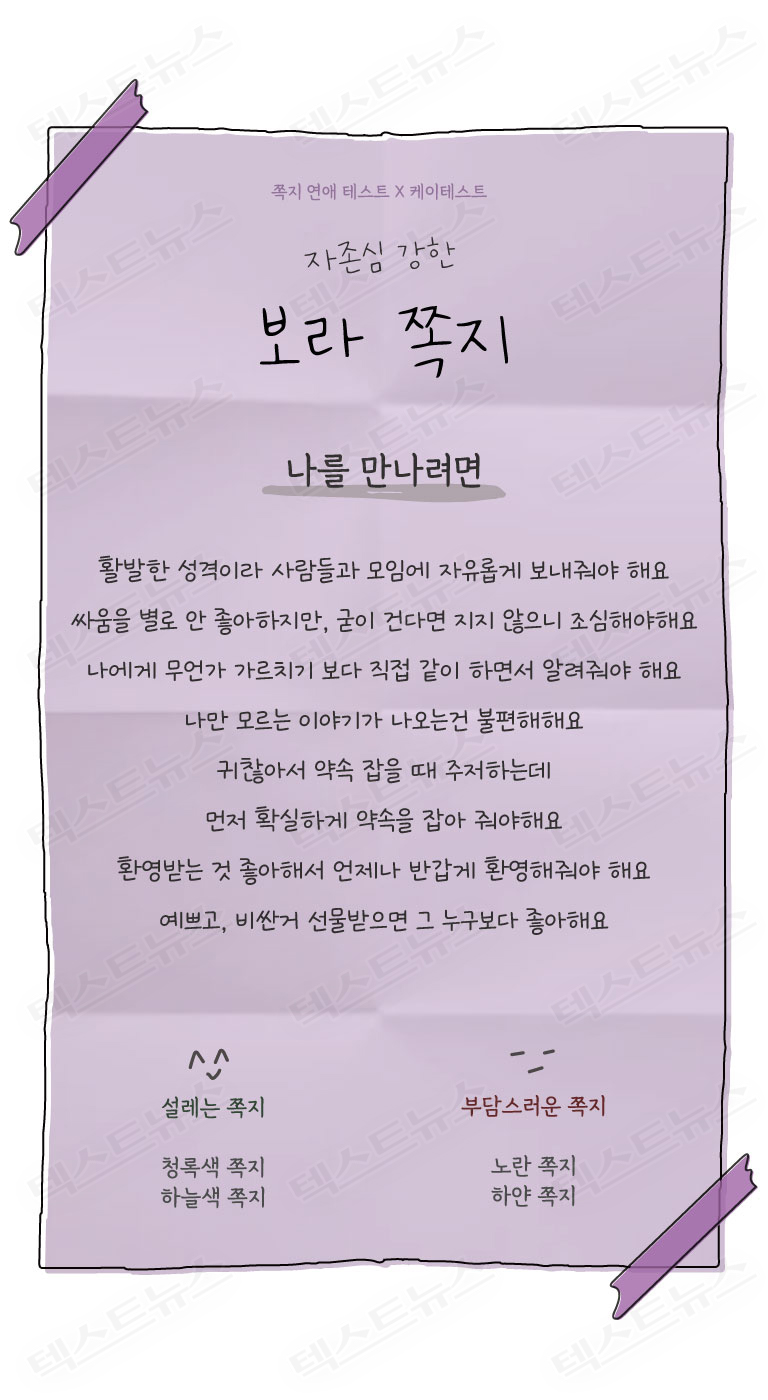 쪽지 연애 테스트 X 케이테스트
자존심 강한
보라 쪽지
나를 만나려면
활발한 성격이라 사람들과 모임에 자유롭게 보내줘야 해요
싸움을 별로 안 좋아하지만, 굳이 건다면 지지 않으니 조심해야해요
나에게 무언가 가르치기 보다 직접 같이 하면서 알려줘야 해요
나만 모르는 이야기가 나오는건 불편해해요
귀찮아서 약속 잡을 때 주저하는데
먼저 확실하게 약속을 잡아 줘야해요
환영받는 것 좋아해서 언제나 반갑게 환영해줘야 해요
예쁘고, 비싼거 선물받으면 그 누구보다 좋아해요
설레는 쪽지
청록색 쪽지
하늘색 쪽지
부담스러운 쪽지
노란 쪽지
하얀 쪽지
텍스트뉴스